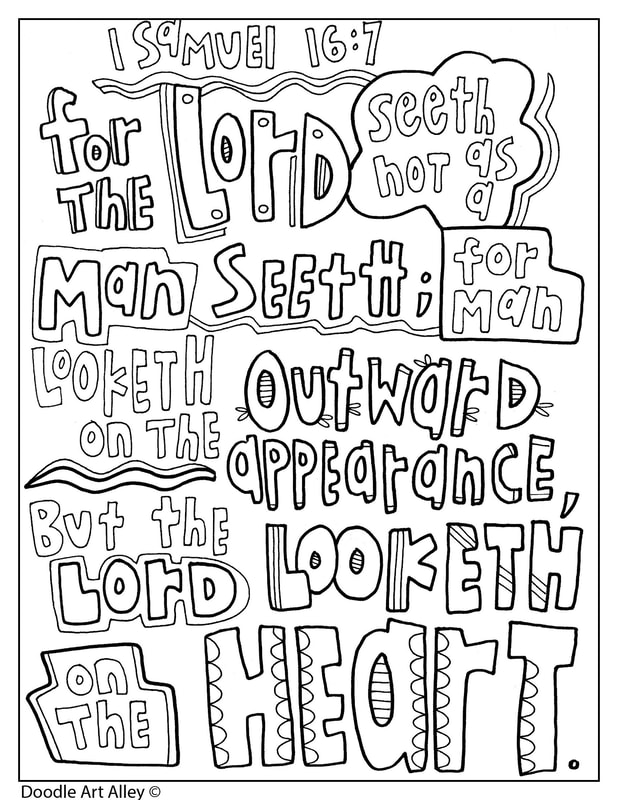 1 SaMUEl 16:7
for THE Lord seeth not as a
Man SEEtH; for Man
LOOKETH on THE Outward appEarancE,
But the Lord LOOKETH
on THE HEarT.
Doodle Art Alley ©